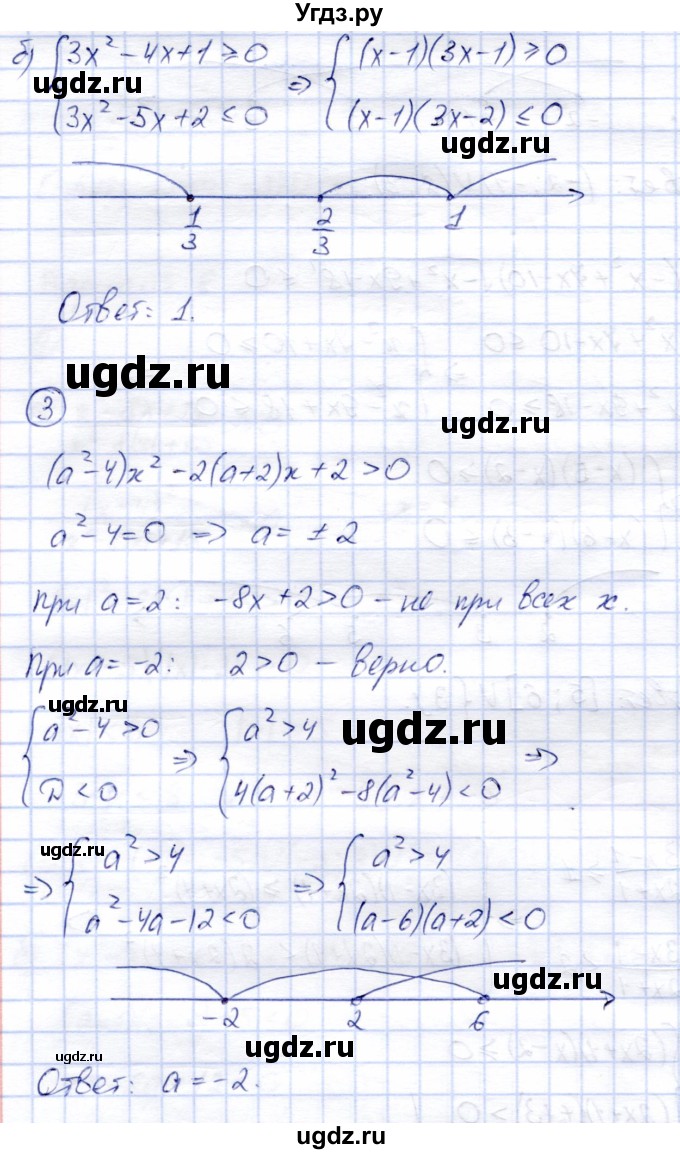 Угдз.ру
б) { 3x² - 4x + 1 ≥ 0 ⇒ { (x-1)(3x-1) ≥ 0
{ 3x² - 5x + 2 ≤ 0 { (x-1)(3x-2) ≤ 0
ugdz.ru ugdz.ru
1/3 2/3 1
ugdz.ru
Ответ: 1.
ugdz.ru
3 ugdz.ru
(a²-4)x² - 2(a+2)x + 2 > 0
a² - 4 = 0 ⇒ a = ±2
при a = 2: -8x + 2 > 0 - не при всех x.
При a = -2: 2 > 0 - верно.
{ a² - 4 > 0 ⇒ { a² > 4 ugdz.ru ⇒
{ D < 0 { 4(a+2)² - 8(a²-4) < 0
ugdz.ru
⇒ { a² > 4 ⇒ { a² > 4
{ a² - 4a - 12 < 0 { (a-6)(a+2) < 0
ugdz.ru
-2 2 6
ugdz.ru
ugdz.ru
Ответ: a = -2.
ugdz.ru